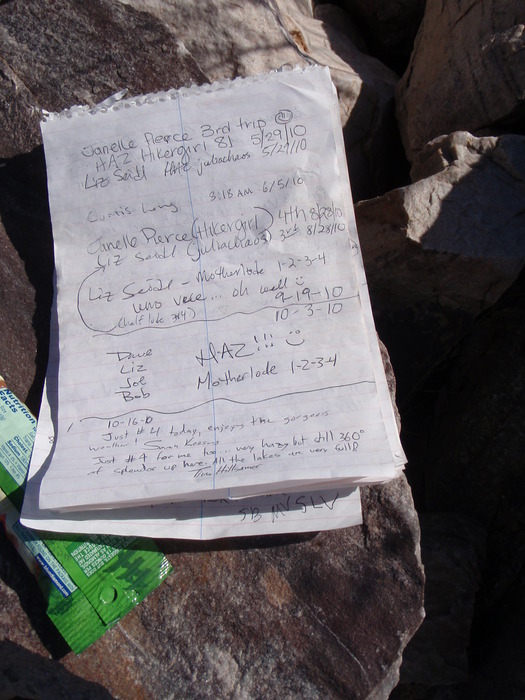 Janelle Pierce 3rd trip
HAZ Hikergirl 81 5/29/10
Liz Seidl HAZ juliachaos 5/29/10
3:18 AM 6/5/10
Janelle Pierce (Hikergirl) 4th 8/28/10
Liz Seidl (juliachaos) 3rd 8/28/10
Liz Seidl - Motherlode 1-2-3-4
uno vece... oh well
(half lode 3#4) 9-19-10
10-3-10
Dave HAZ!!!
Liz
Joe Motherlode 1-2-3-4
Bob
10-16-10
Just #4 today, enjoying the gorgeous
weather!
Just #4 for me too... very hazy but still 360°
of splendor up here. All the lakes are very full!
Tim
Nutrition
Facts